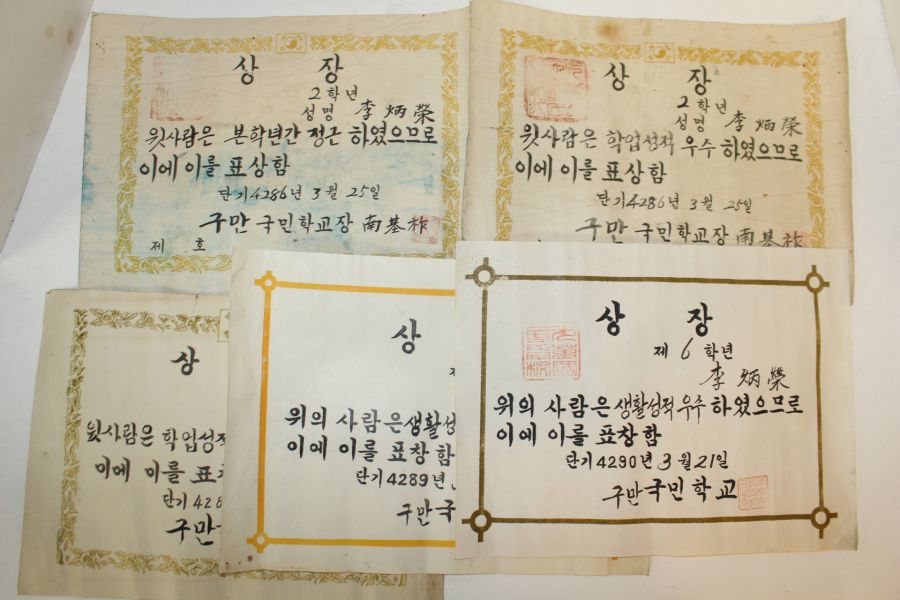 상 장
2학년
성명 李炳榮
윗사람은 본학년간 정근 하였으므로
이에 이를 표상함
단기4286년 3월 25일
구만 국민학교장 南基祚
제 호
상 장
2학년
성명 李炳榮
윗사람은 학업성적 우수 하였으므로
이에 이를 표상함
단기4286년 3월 25일
구만 국민학교장 南基祚
상
윗사람은 학업성적
이에 이를 표
단기 428
구만
상
위의 사람은 생활성
이에 이를 표창함
단기4289년
구만국
상 장
제 6 학년
李炳榮
위의 사람은 생활성적우수 하였으므로
이에 이를 표창함
단기4290년 3월21일
구만국민학교